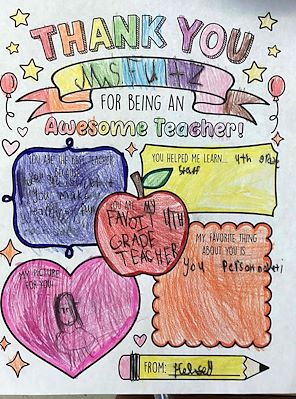 THANK YOU
Ms Fultz
FOR BEING AN
Awesome Teacher!
YOU ARE THE BEST TEACHER
you make
YOU HELPED ME LEARN... 4th grade
staff
YOU ARE MY
FAVOI 4TH
GRADE
TEACHER
MY FAVORITE THING
ABOUT YOU IS
you
MY PICTURE
FOR YOU!
FROM: